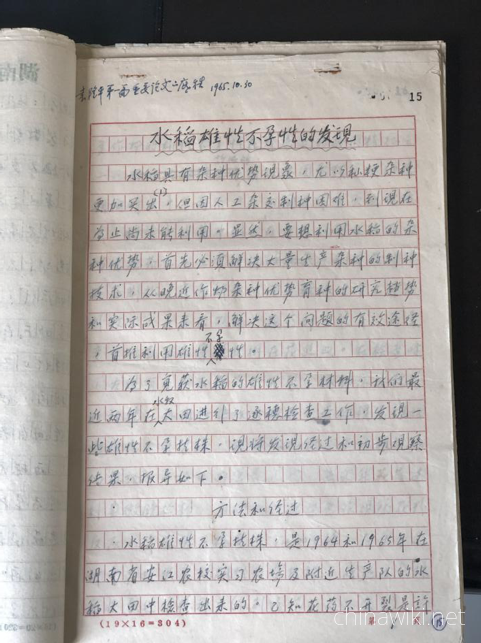 袁隆平第一篇重要论文之底稿 1965.10.30
15
湖南
水稻雄性不孕性的发现
水稻具有杂种优势现象，尤以籼粳杂种
更加突出，但因人工杂交制种困难，到现在
(1)
为止尚未能利用。显然，要想利用水稻的杂
种优势，首先必须解决大量生产杂种的制种
技术，从晚近作物杂种优势育种的研究趋势
和实际成果来看，解决这个问题的有效途径
，首推利用雄性不孕性。
为了觅获水稻的雄性不孕材料，我们最
近两年在水稻大田进行了逐穗检查工作，发现一
些雄性不孕植株，现将发现经过和初步观察
结果，报导如下。
方法和经过
水稻雄性不孕植株，是1964和1965年在
湖南省安江农校实习农场及附近生产队的水
稻大田中检查出来的。已知花药不开裂是许
(19×16=304)
chinawiki.net